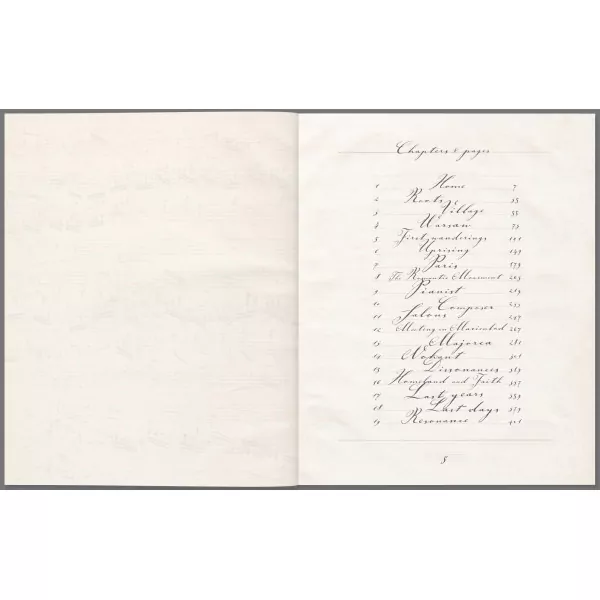 Chapters & pages
1 Home 7
2 Roots
3 Village
4 Warsaw
5 First wanderings
6 Uprising 149
7 Paris
8 The Romantic Movement
9 Pianist
10 Composer
11 Salons
12 Meeting in Marienbad 267
13 Majorca 281
14 Nohant
15 Dissonances
16 Homeland and Faith
17 Last years
18 Last days
19 Resonance
5